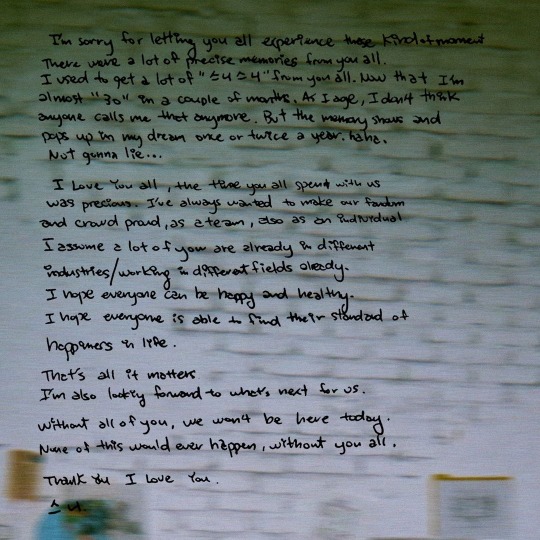 I'm sorry for letting you all experience these kind of moment
There were a lot of precise memories from you all.
I used to get a lot of "스니스니" from you all. Now that I'm
almost "30" in a couple of months. As I age, I don't think
anyone calls me that anymore. But the memory shows and
pops up in my dream once or twice a year. haha.
Not gonna lie...
I Love You all, the time you all spent with us
was precious. I've always wanted to make our fandom
and crowd proud, as a team, also as an individual
I assume a lot of you are already in different
industries/working in different fields already.
I hope everyone can be happy and healthy.
I hope everyone is able to find their standard of
happiness in life.
That's all it matters
I'm also looking forward to what's next for us.
Without all of you, we won't be here today.
None of this would ever happen, without you all.
Thank You I Love You.
스니.